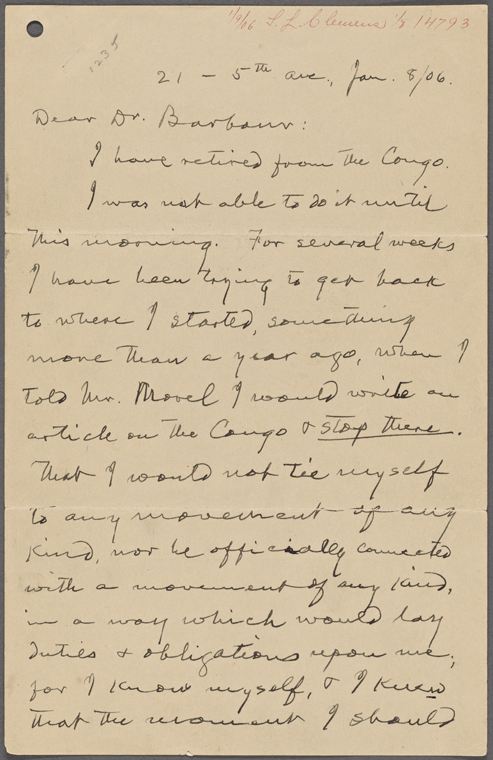 1/9/06 S. L. Clemens 1/8 14793
1235
21 - 5th ave., Jan. 8/06.
Dear Dr. Barbour:
I have retired from the Congo.
I was not able to do it until
this morning. For several weeks
I have been trying to get back
to where I started, something
more than a year ago, when I
told Mr. Morel I would write an
article on the Congo & stop there.
That I would not tie myself
to any movement of any
kind, nor be officially connected
with a movement of any kind,
in a way which would lay
duties & obligations upon me;
for I know myself, & I knew
that the moment I should